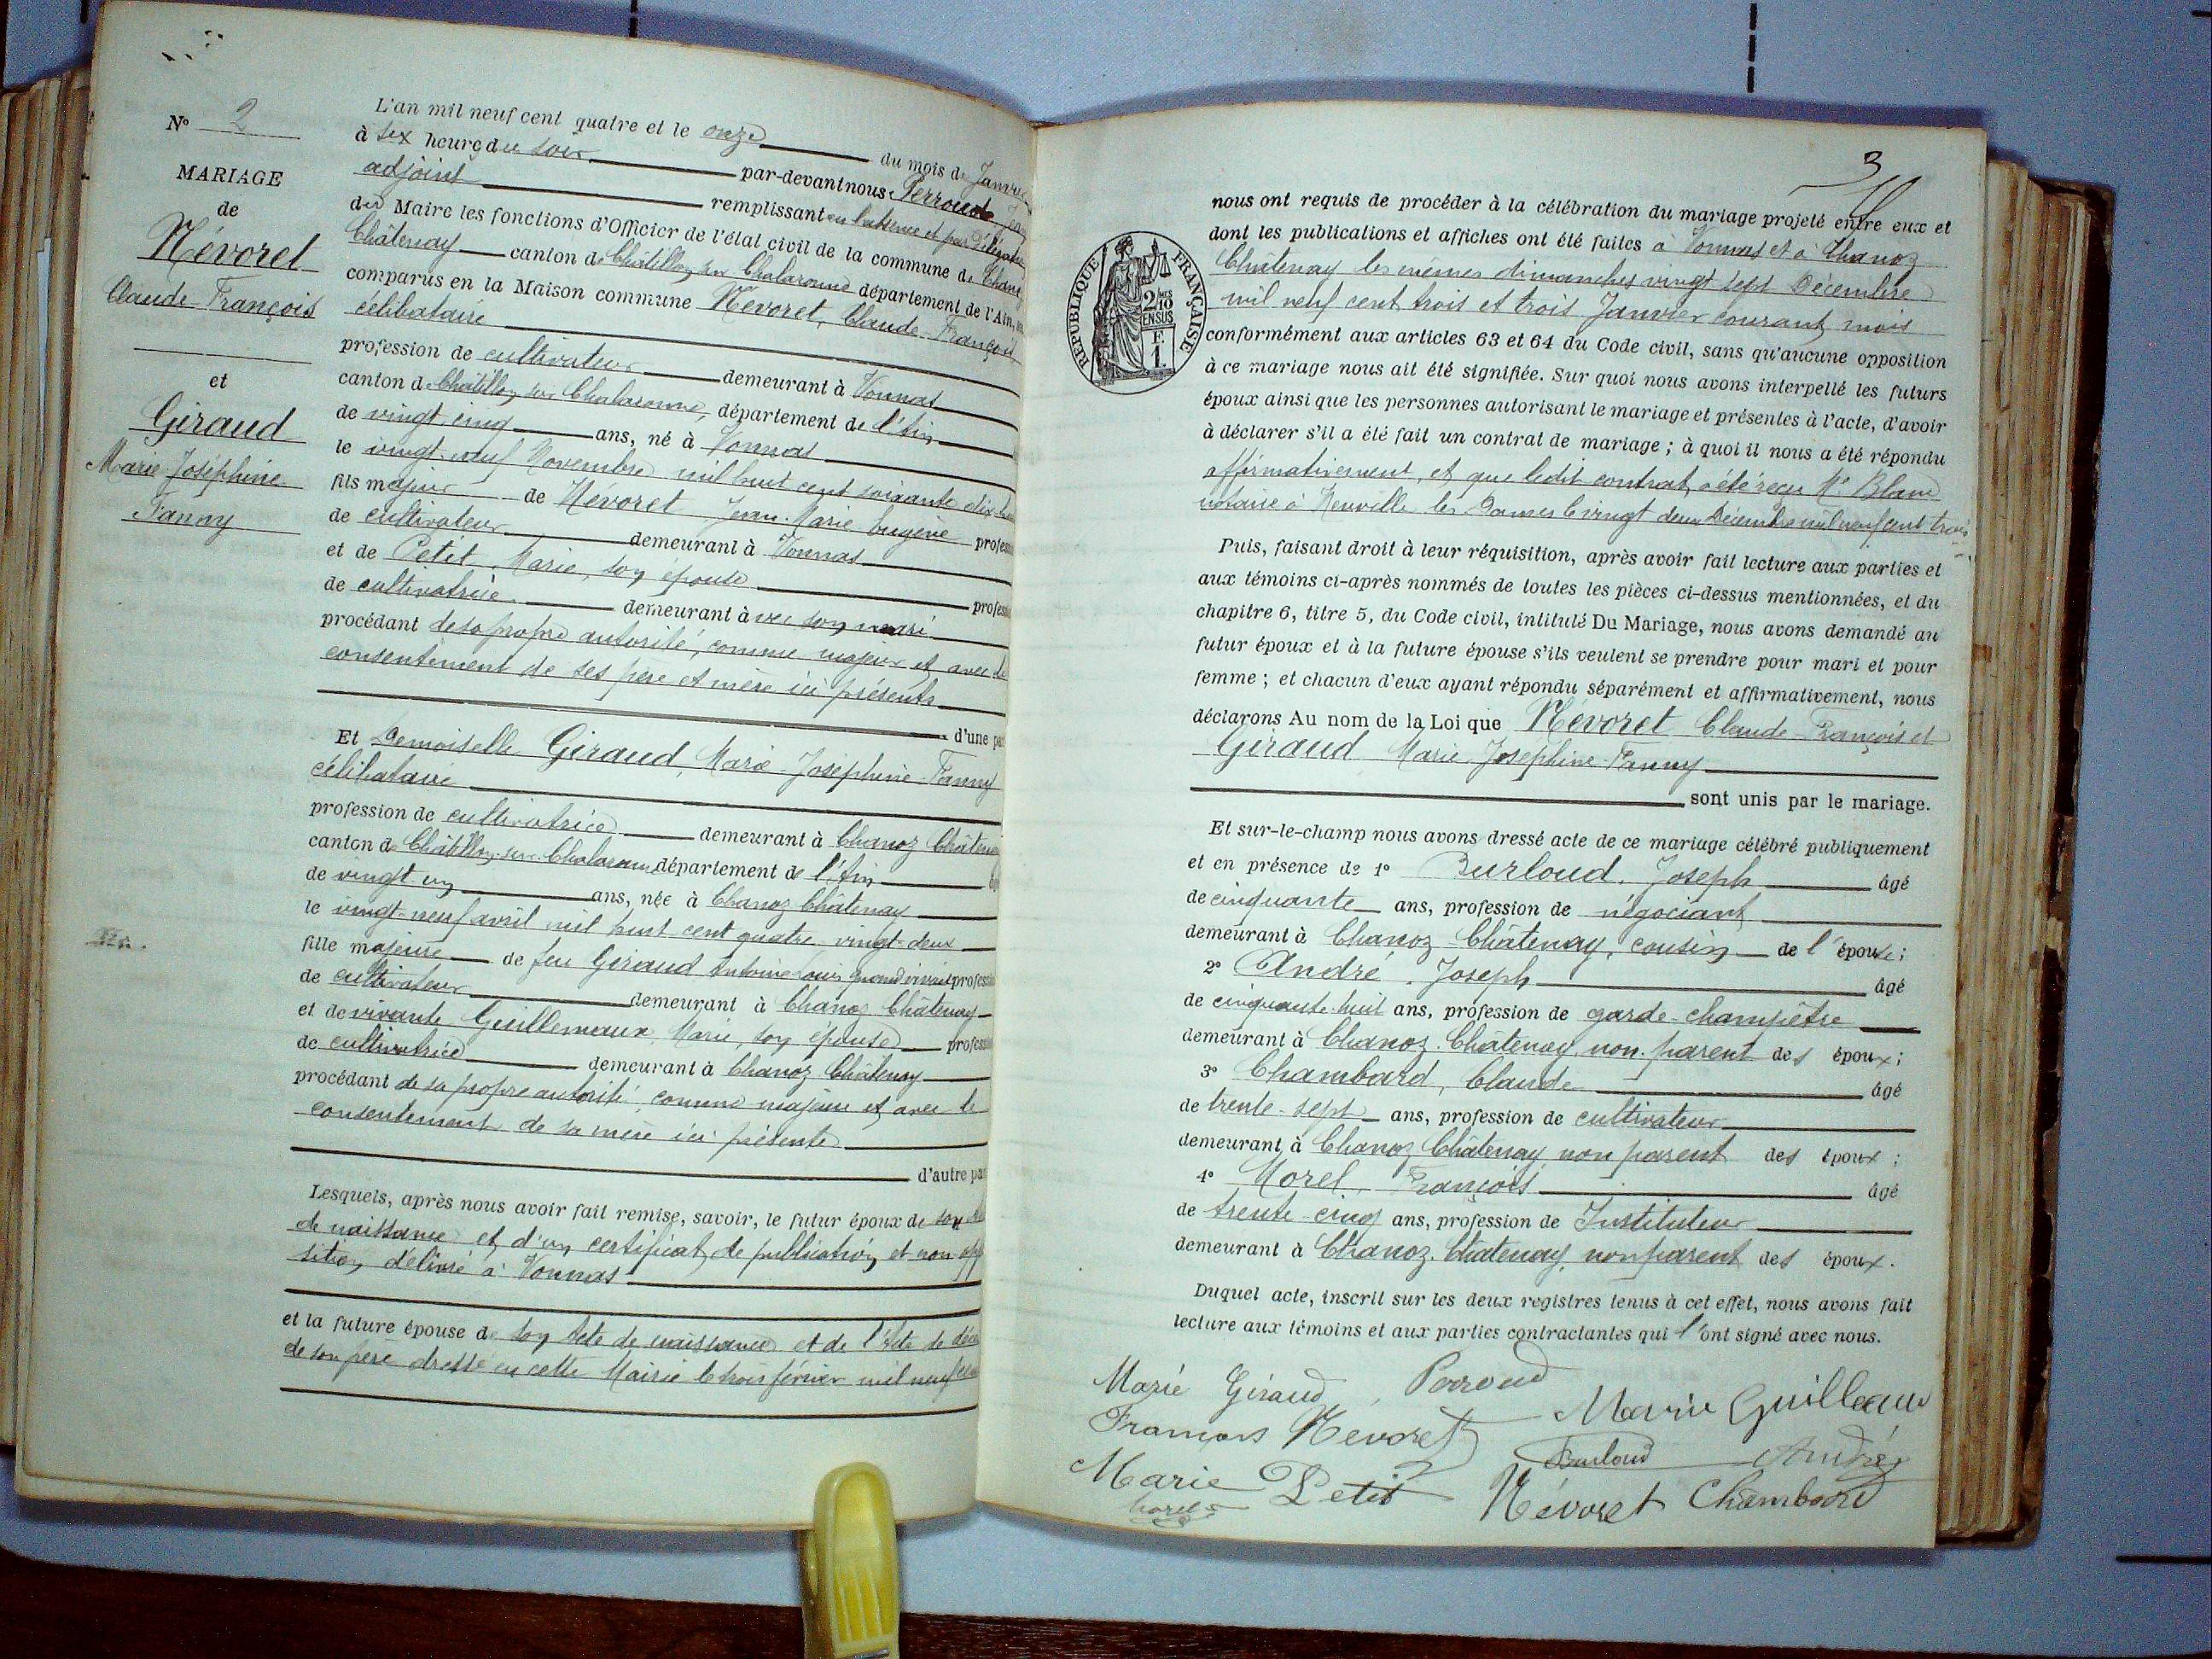 N° 2
MARIAGE
de
Névoret
Claude-François
et
Giraud
Marie-Joséphine
Fanny
L'an mil neuf cent quatre et le onze du mois de Janvier
à six heures du soir par-devant nous Perroud Jean
adjoint remplissant en l'absence et par délégation
du Maire les fonctions d'Officier de l'état civil de la commune de Chanoz
Châtenay canton de Châtillon sur Chalaronne département de l'Ain,
comparus en la Maison commune Névoret, Claude-François
célibataire
profession de cultivateur demeurant à Vonnas
canton de Châtillon sur Chalaronne, département de l'Ain
de vingt-cinq ans, né à Vonnas
le vingt-neuf Novembre mil huit cent soixante dix-huit
fils majeur de Névoret Jean-Marie Eugène profession
de cultivateur demeurant à Vonnas
et de Petit, Marie, son épouse profession
de cultivatrice demeurant avec son mari
procédant de sa propre autorité, comme majeur et avec le
consentement de ses père et mère ici présents
d'une part
Et Demoiselle Giraud, Marie-Joséphine-Fanny
célibataire
profession de cultivatrice demeurant à Chanoz Châtenay
canton de Châtillon sur Chalaronne, département de l'Ain
de vingt-un ans, née à Chanoz Châtenay
le vingt-neuf avril mil huit cent quatre vingt-deux
fille majeure de feu Giraud Antoine Louis quand vivait profession
de cultivateur demeurant à Chanoz Châtenay
et de vivante Guillemaux, Marie, son épouse profession
de cultivatrice demeurant à Chanoz Châtenay
procédant de sa propre autorité, comme majeure et avec le
consentement de sa mère ici présente
d'autre part
Lesquels, après nous avoir fait remise, savoir, le futur époux de son acte
de naissance et d'un certificat de publication et non oppo
sition délivré à Vonnas
et la future épouse de son Acte de naissance et de l'Acte de décès
de son père dressé en cette Mairie le trois février mil neuf cent
3
RÉPUBLIQUE FRANÇAISE
2 MES 10
EN SUS
F.
1.
nous ont requis de procéder à la célébration du mariage projeté entre eux et
dont les publications et affiches ont été faites à Vonnas et à Chanoz
Châtenay les mêmes dimanches vingt sept Décembre
mil neuf cent trois et trois Janvier courant mois
conformément aux articles 63 et 64 du Code civil, sans qu'aucune opposition
à ce mariage nous ait été signifiée. Sur quoi nous avons interpellé les futurs
époux ainsi que les personnes autorisant le mariage et présentes à l'acte, d'avoir
à déclarer s'il a été fait un contrat de mariage ; à quoi il nous a été répondu
affirmativement, et que ledit contrat a été reçu Me Blanc
notaire à Neuville les Dames le vingt deux Décembre mil neuf cent trois
Puis, faisant droit à leur réquisition, après avoir fait lecture aux parties et
aux témoins ci-après nommés de toutes les pièces ci-dessus mentionnées, et du
chapitre 6, titre 5, du Code civil, intitulé Du Mariage, nous avons demandé au
futur époux et à la future épouse s'ils veulent se prendre pour mari et pour
femme ; et chacun d'eux ayant répondu séparément et affirmativement, nous
déclarons Au nom de la Loi que Névoret Claude-François et
Giraud Marie-Joséphine-Fanny
sont unis par le mariage.
Et sur-le-champ nous avons dressé acte de ce mariage célébré publiquement
et en présence de 1° Burloud, Joseph âgé
de cinquante ans, profession de négociant
demeurant à Chanoz-Châtenay, cousin de l'épouse ;
2° André, Joseph âgé
de cinquante-huit ans, profession de garde-champêtre
demeurant à Chanoz-Châtenay, non parent des époux ;
3° Chambard, Claude âgé
de trente-sept ans, profession de cultivateur
demeurant à Chanoz Châtenay non parent des époux ;
4° Morel, François âgé
de trente-cinq ans, profession de Instituteur
demeurant à Chanoz-Châtenay, non parent des époux.
Duquel acte, inscrit sur les deux registres tenus à cet effet, nous avons fait
lecture aux témoins et aux parties contractantes qui l'ont signé avec nous.
Marie Giraud Perroud Marie Guillemau
François Névoret Burloud André
Marie Petit Névoret Chambard
Morel